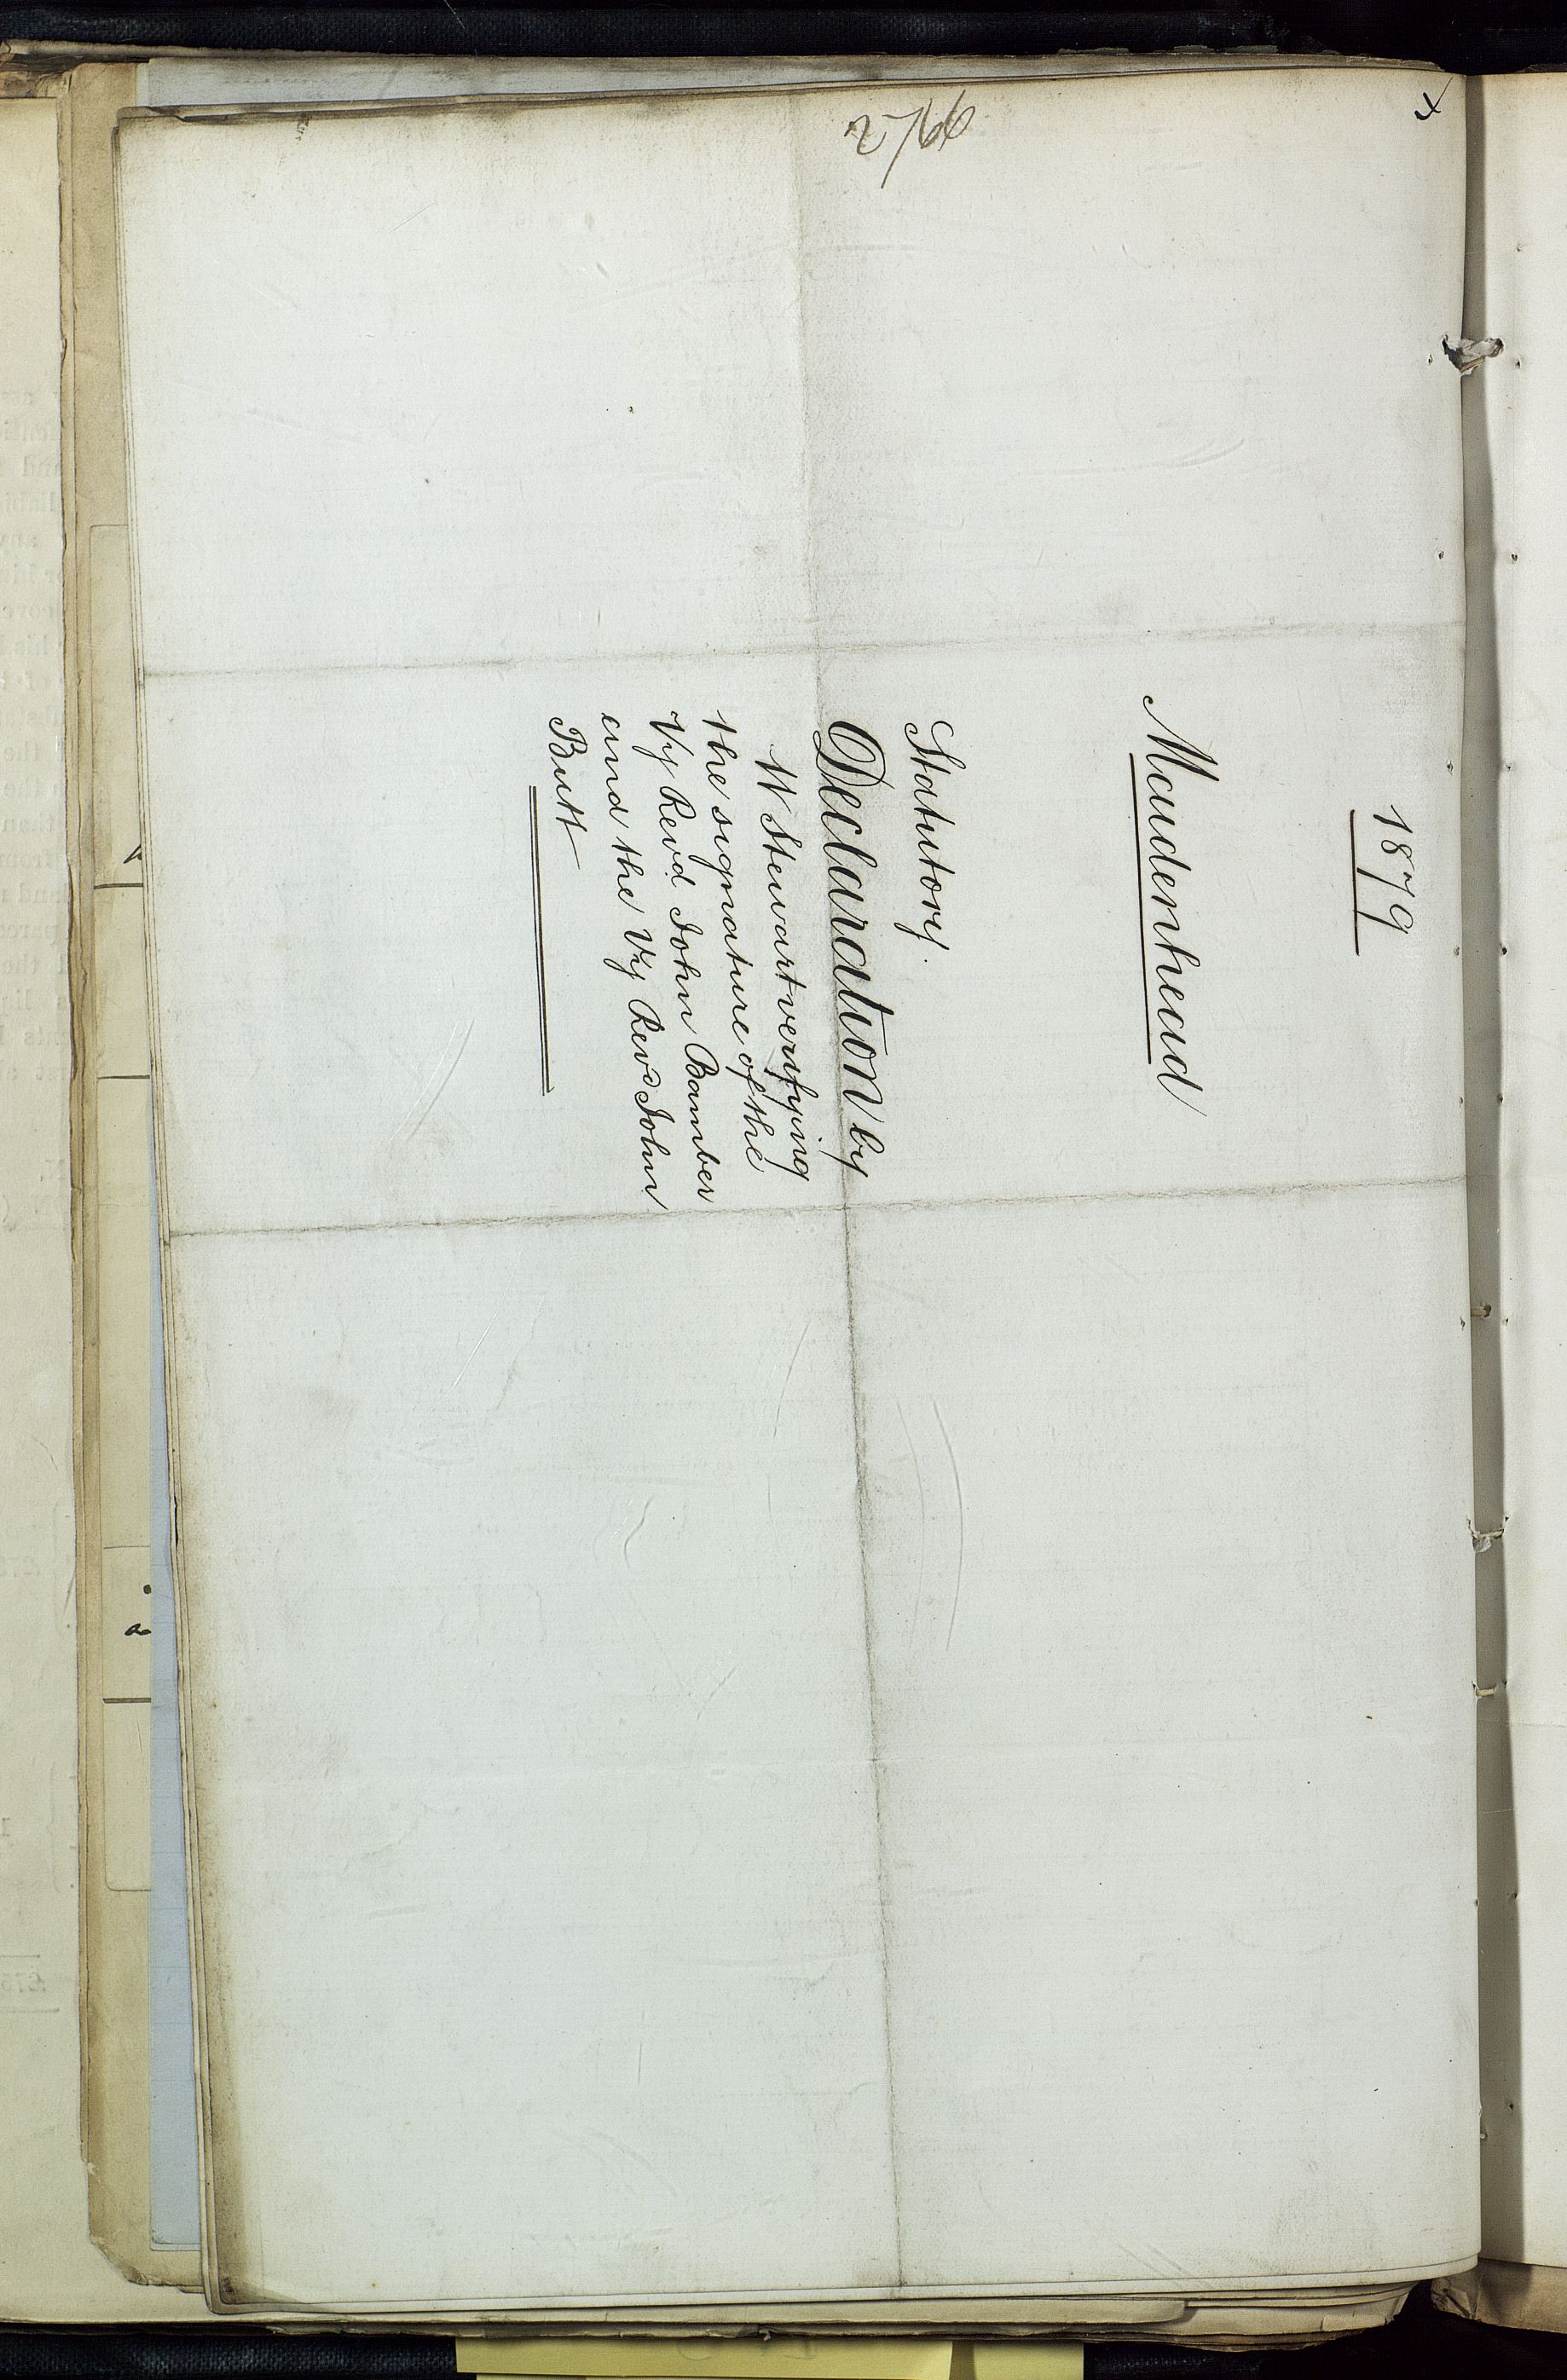 2766
1879
Maidenhead
Statutory
Declaration by
W Stewart verifying
the signature of the
Vy Revd John Bamber
and the Vy Revd John
Butt